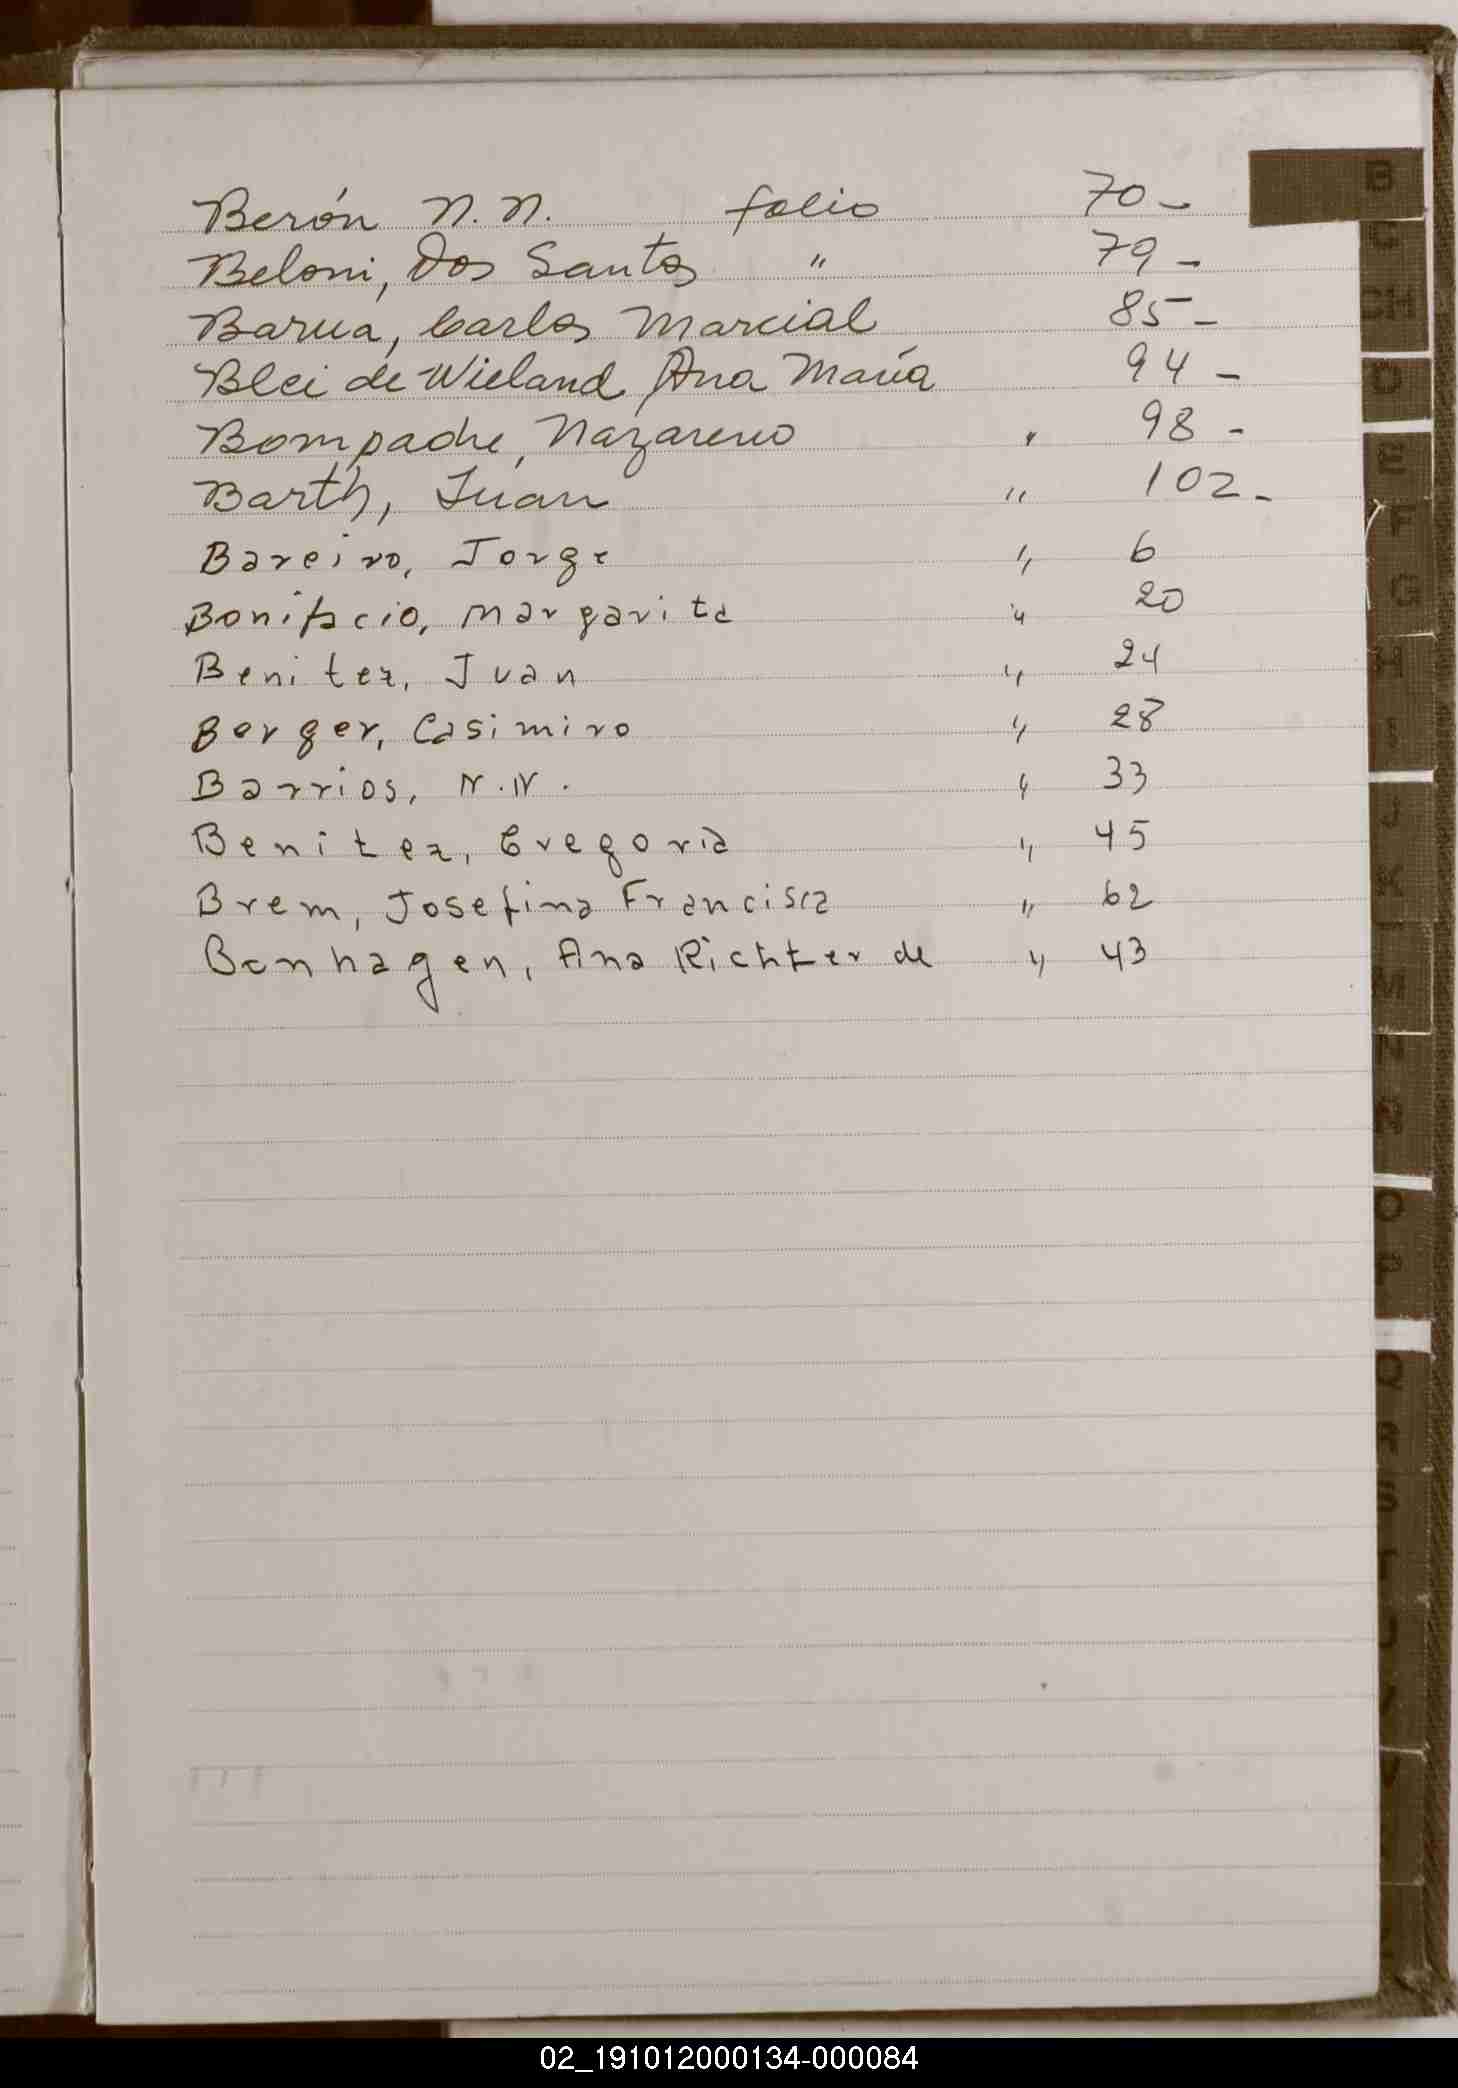 Berón N.N. folio 70-
Beloni, Dos Santos " 79-
Barua, Carlos Marcial 85-
Blei de Wieland, Ana María 94-
Bompadre, Nazareno " 98-
Barth, Juan " 102-
Bareiro, Jorge " 6
Bonifacio, Margarita " 20
Benitez, Juan " 24
Berger, Casimiro " 28
Barrios, N.N. " 33
Benitez, Gregoria " 45
Brem, Josefina Francisca " 62
Bonhagen, Ana Richter de " 43
B
C
CH
D
E
F
G
H
I
J
K
L
M
N
Ñ
O
P
Q
R
S
T
U
V
02_191012000134-000084